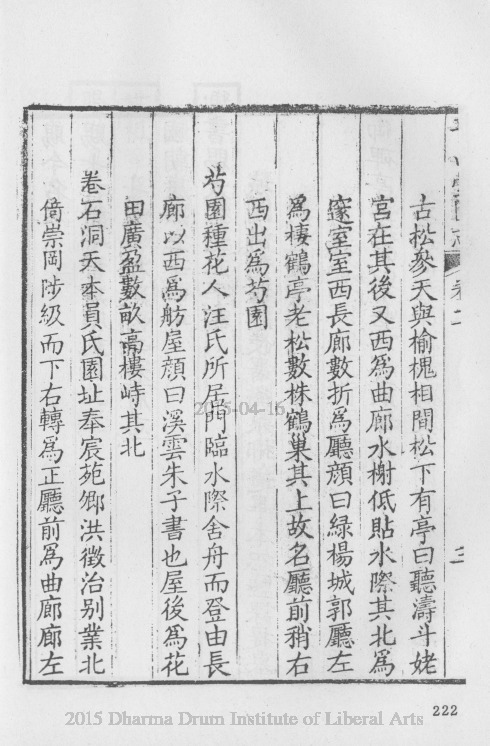 古松參天與榆槐相間松下有亭曰聽濤斗姥
宮在其後又西爲曲廊水榭低貼水際其北爲
邃室室西長廊數折爲廳顔曰綠楊城郭廳左
爲棲鶴亭老松數株鶴巢其上故名廳前稍右
西出爲芍園
芍園種花人汪氏所居門臨水際舍舟而登由長
廊以西爲舫屋顔曰溪雲朱子書也屋後爲花
田廣盈數畝高樓峙其北
卷石洞天本員氏園址奉宸苑卿洪徵治别業北
倚崇岡陟級而下右轉爲正廳前爲曲廊廊左
卷二
三
2015-04-16
222
2015 Dharma Drum Institute of Liberal Arts